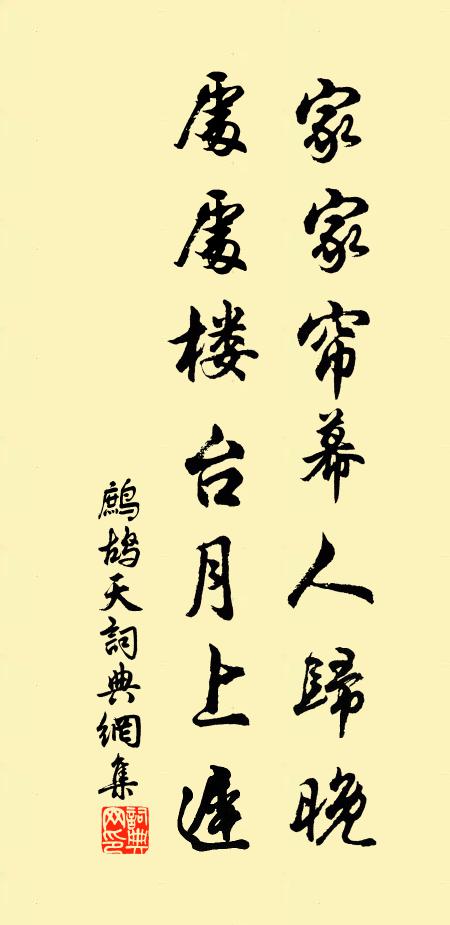 家家帘幕人歸晚
處處楼台月上遲
鷓鴣天詞典網集
詞典網印